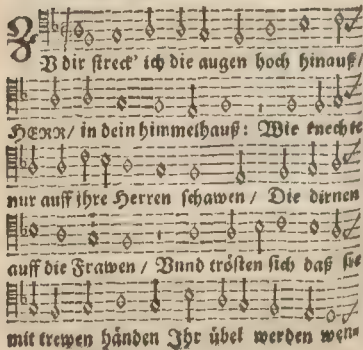 ZV dir streck' ich die augen hoch hinauß/
HERR/ in dein himmelhauß: Wie knechte
nur auff ihre Herren schawen/ Die dirnen
auff die Frawen/ Vnnd trösten sich daß sie
mit trewen händen Ihr übel werden wenn